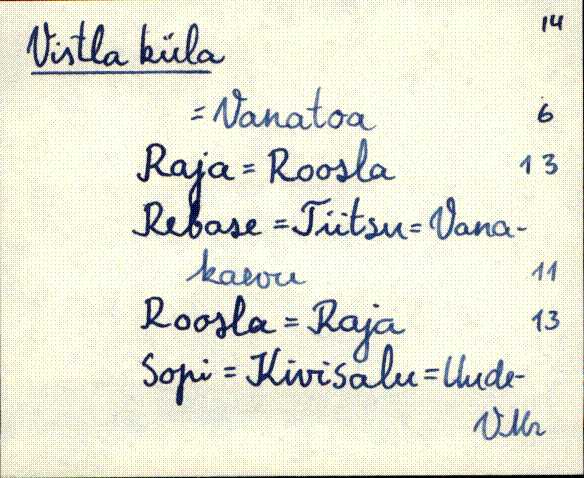 14
Vistla küla
= Vanatoa 6
Raja = Roosla 13
Rebase = Tiitsu = Vana-
kaevu 11
Roosla = Raja 13
Sopi = Kivisalu = Uude-
VMr